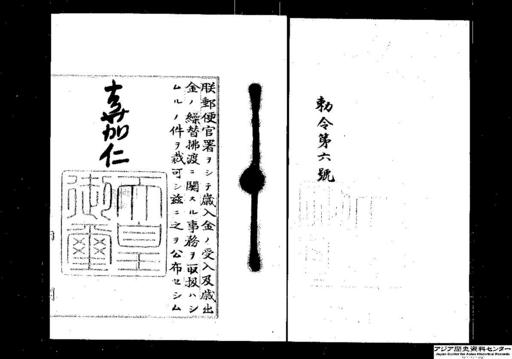 勅令第六號
朕郵便官署ヲシテ歳入金ノ受入及歳出
金ノ繰替拂渡ニ関スル事務ヲ取扱ハシ
ムルノ件ヲ裁可シ茲ニ之ヲ公布セシム
嘉仁
天皇
御璽
アジア歴史資料センター
Japan Center for Asian Historical Records